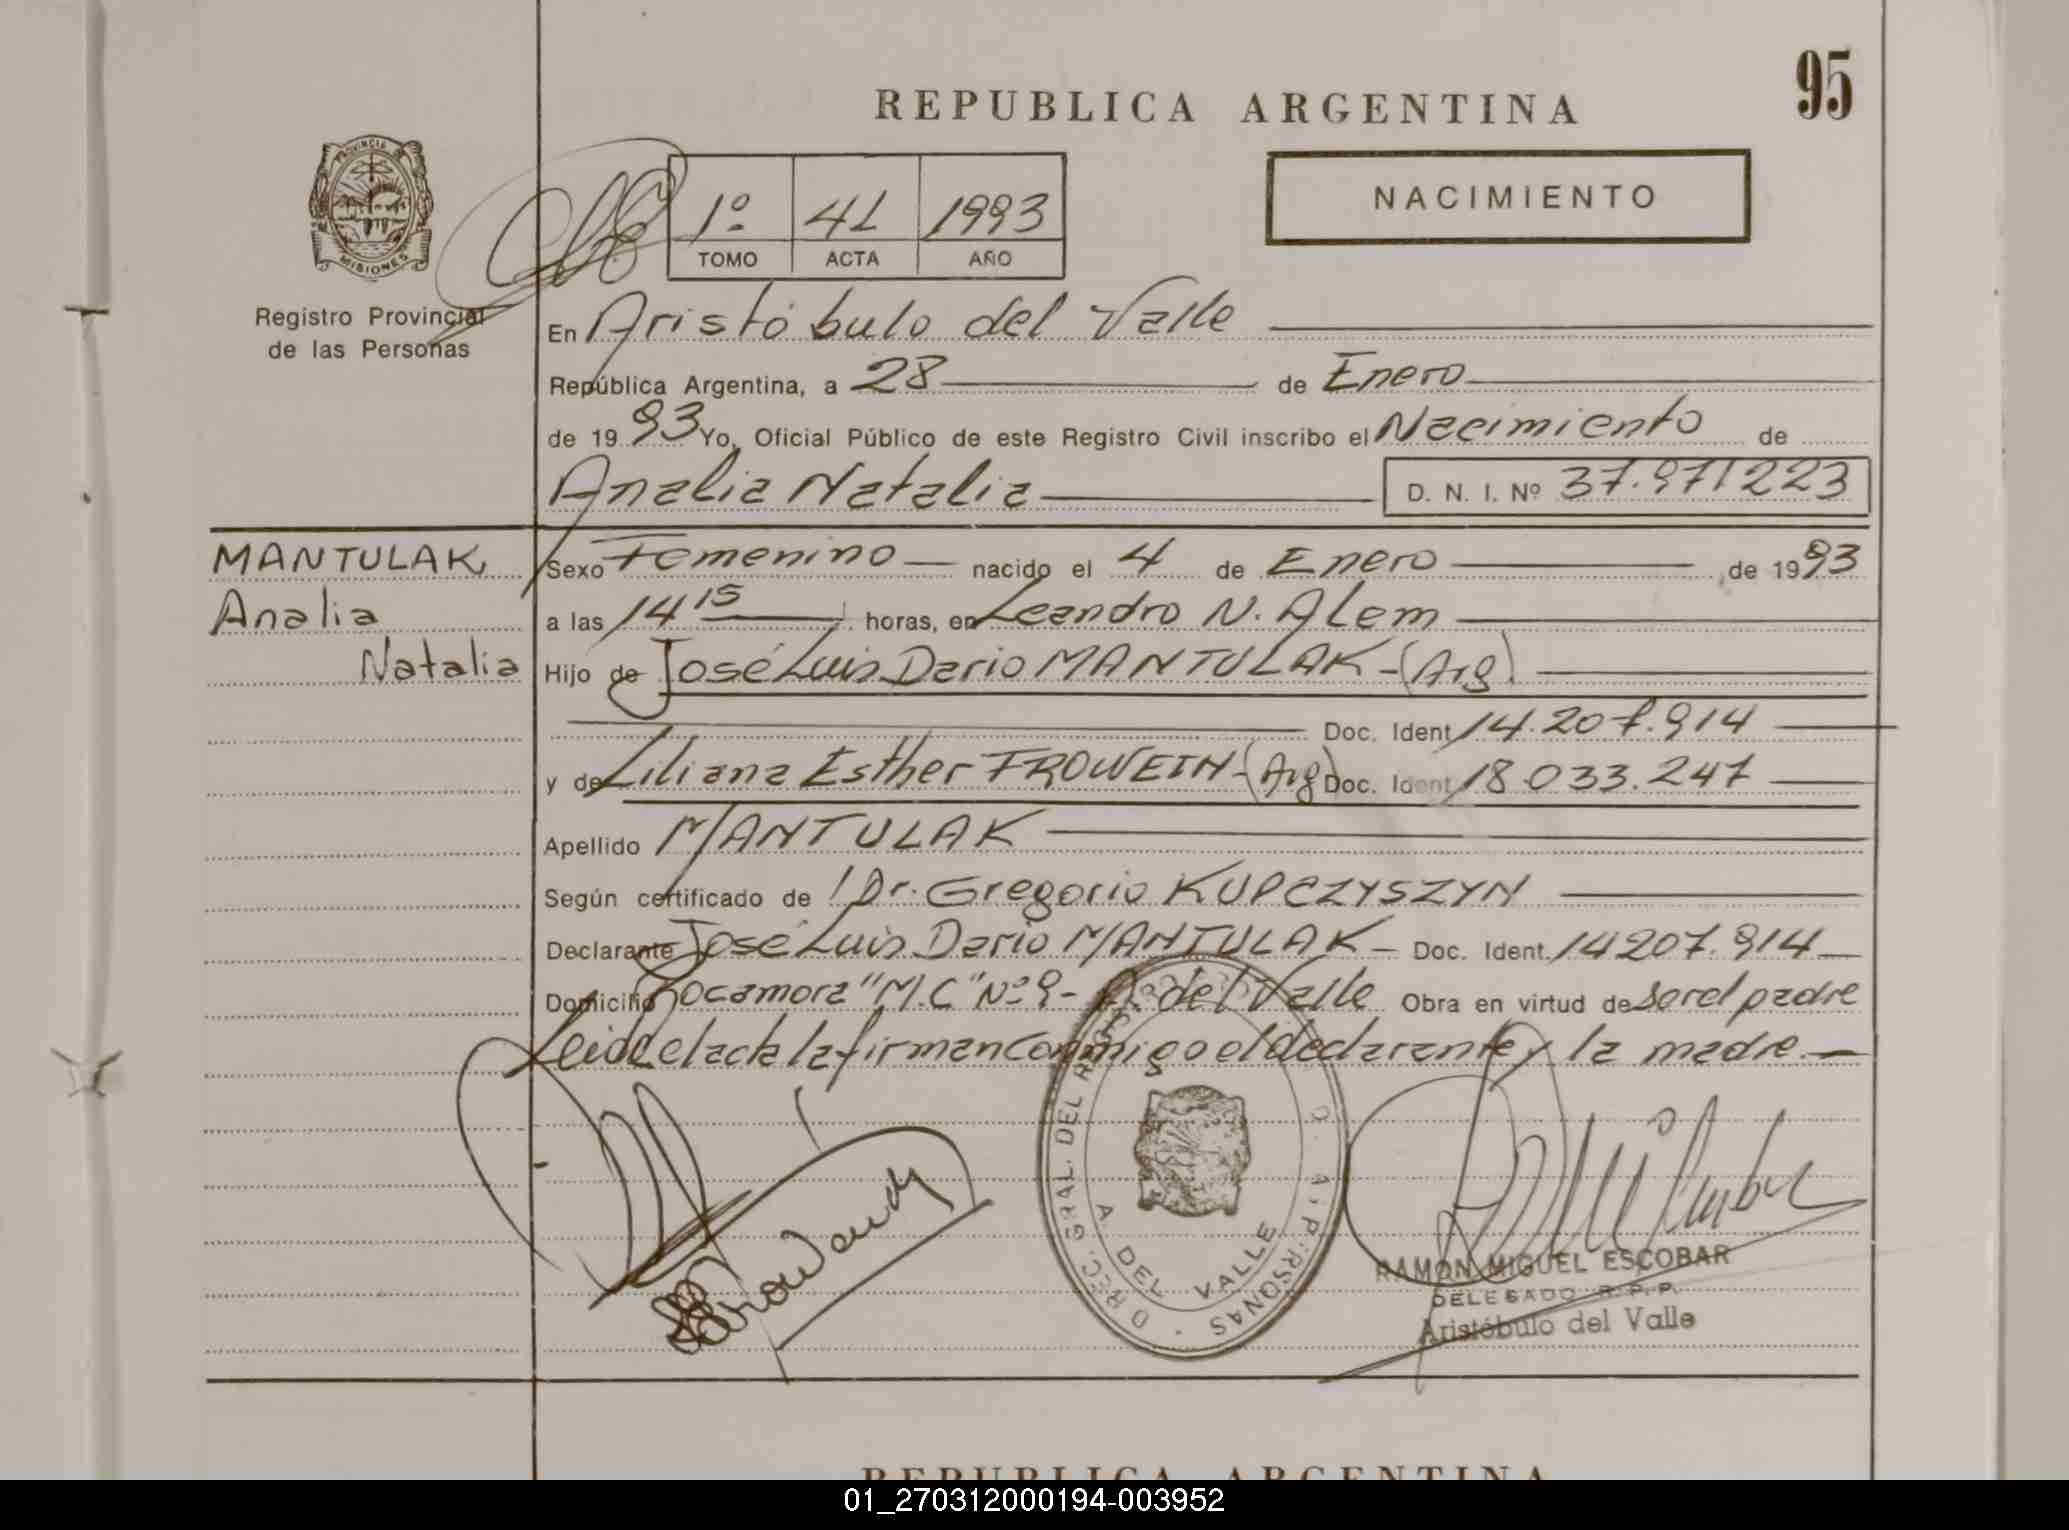 95
REPUBLICA ARGENTINA
NACIMIENTO
PROVINCIA DE
MISIONES
1º 41 1993
TOMO ACTA AÑO
Registro Provincial
de las Personas
En Aristóbulo del Valle
República Argentina, a 28 de Enero
de 1993 Yo, Oficial Público de este Registro Civil inscribo el Nacimiento de
Analia Natalia D. N. I. Nº 37.971223
MANTULAK,
Analia
Natalia
Sexo Femenino nacido el 4 de Enero de 1993
a las 14 15 horas, en Leandro N. Alem
Hijo de José Luis Dario MANTULAK - (Arg)
Doc. Ident 14.207.914
y de Liliana Esther FROWEIN - (Arg) Doc. Ident 18.033.247
Apellido MANTULAK
Según certificado de Dr. Gregorio KUPCZYSZYN
Declarante José Luis Dario MANTULAK - Doc. Ident. 14207.914
Domicilio Rocamora "M.C" Nº 9 - A. del Valle Obra en virtud de ser el padre
Leida el acta la firman conmigo el declarante y la madre. -
A. DEL VALLE
RAMON MIGUEL ESCOBAR
DELEGADO R.P.P.
Aristóbulo del Valle
REPUBLICA ARGENTINA
01_270312000194-003952